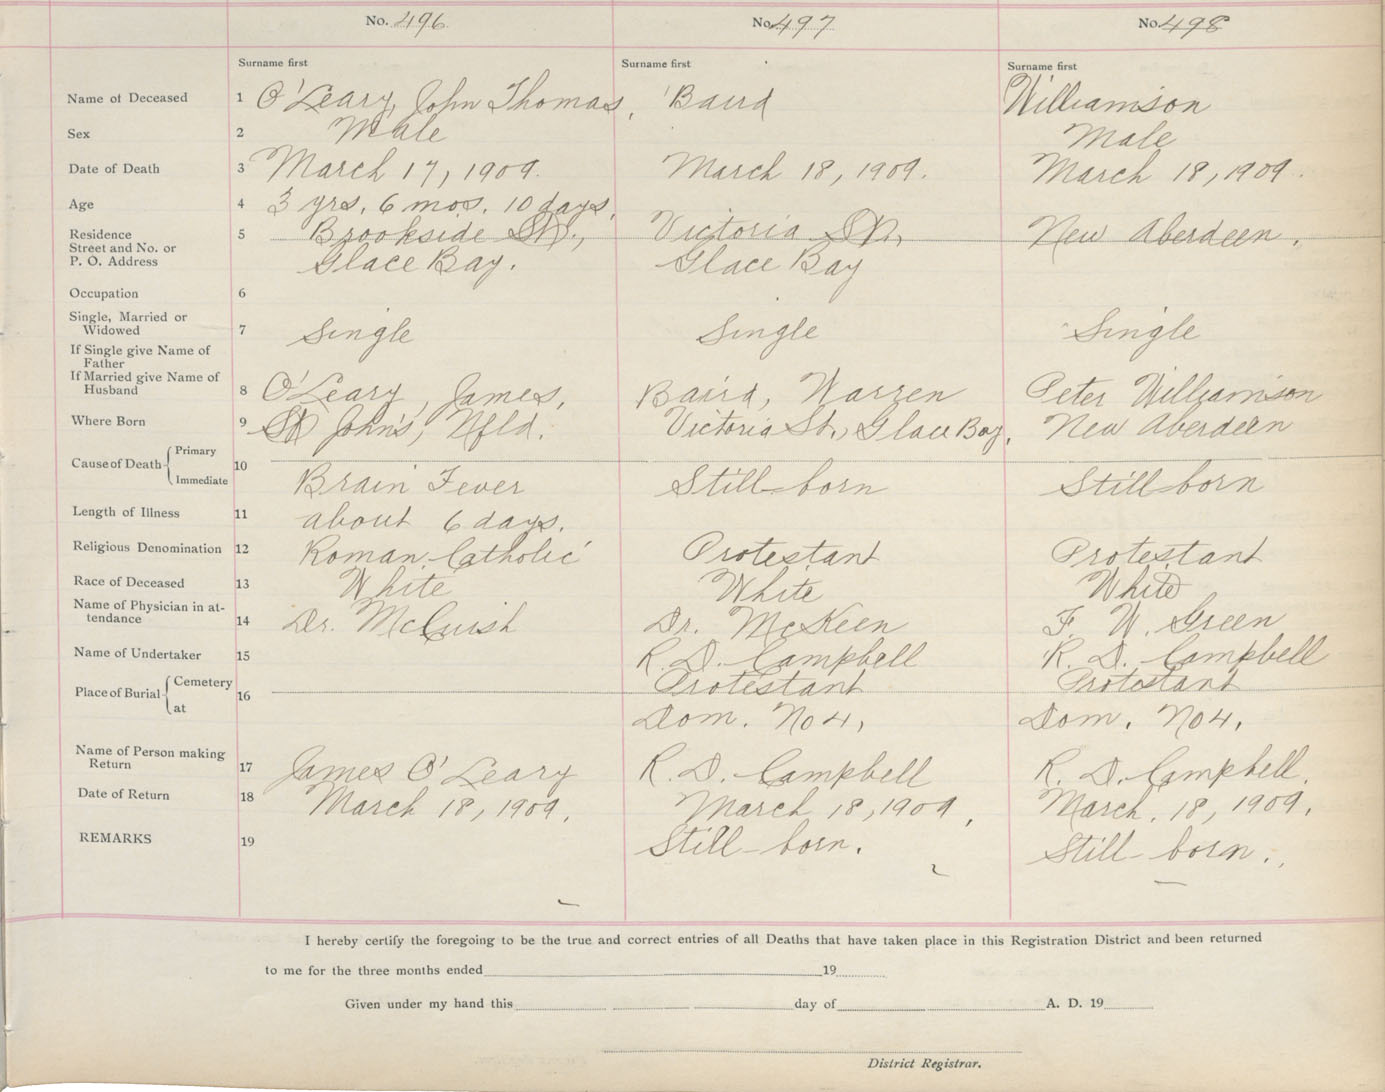 No. 496 No. 497 No. 498
Surname first Surname first Surname first
Name of Deceased 1 O'Leary, John Thomas, Baird Williamson
Sex 2 Male Male
Date of Death 3 March 17, 1909. March 18, 1909. March 18, 1909.
Age 4 3 yrs. 6 mos. 10 days.
Residence 5 Brookside St., Victoria St., New Aberdeen.
Street and No. or
P. O. Address Glace Bay. Glace Bay
Occupation 6
Single, Married or
Widowed 7 Single Single Single
If Single give Name of
Father
If Married give Name of
Husband 8 O'Leary, James, Baird, Warren Peter Williamson
Where Born 9 St John's, Nfld. Victoria St., Glace Bay. New Aberdeen
Cause of Death Primary
10
Immediate Brain Fever Still-born Still-born
Length of Illness 11 about 6 days.
Religious Denomination 12 Roman Catholic Protestant Protestant
Race of Deceased 13 White White White
Name of Physician in at-
tendance 14 Dr. McCuish Dr. McKeen F. W. Green
Name of Undertaker 15 R. D. Campbell R. D. Campbell
Place of Burial Cemetery 16 Protestant Protestant
at Dom. No 4, Dom. No 4,
Name of Person making
Return 17 James O'Leary R. D. Campbell R. D. Campbell.
Date of Return 18 March 18, 1909. March 18, 1909, March. 18, 1909.
REMARKS 19 Still-born. Still-born.
I hereby certify the foregoing to be the true and correct entries of all Deaths that have taken place in this Registration District and been returned
to me for the three months ended 19
Given under my hand this day of A. D. 19
District Registrar.